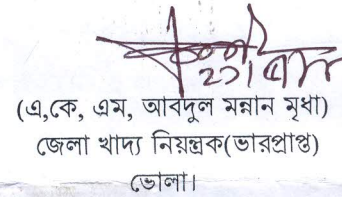 (এ,কে, এম, আবদুল মন্নান মৃধা)
জেলা খাদ্য নিয়ন্ত্রক(ভারপ্রাপ্ত)
ভোলা।